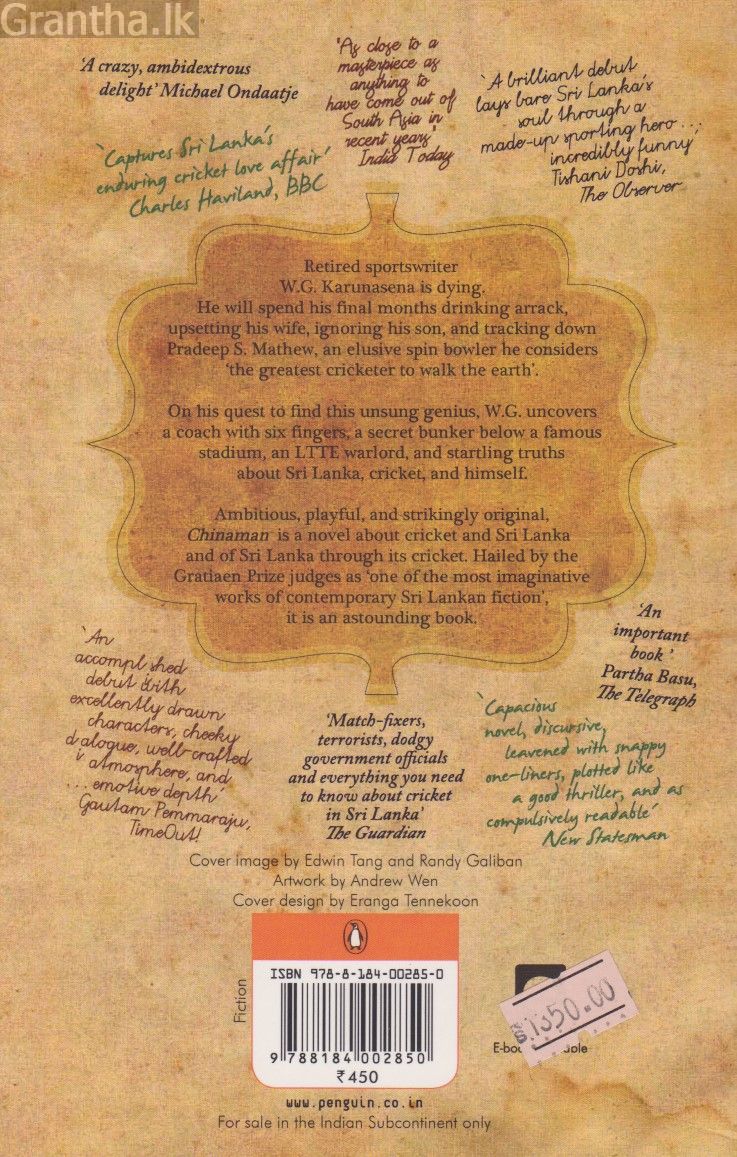 Grantha.lk
'A crazy, ambidextrous
delight' Michael Ondaatje
'As close to a
masterpiece as
anything to
have come out of
South Asia in
recent years'
India Today
'A brilliant debut
lays bare Sri Lanka's
soul through a
made-up sporting hero ...
incredibly funny'
Tishani Doshi,
The Observer
'Captures Sri Lanka's
enduring cricket love affair'
Charles Haviland, BBC
Retired sportswriter
W.G. Karunasena is dying.
He will spend his final months drinking arrack,
upsetting his wife, ignoring his son, and tracking down
Pradeep S. Mathew, an elusive spin bowler he considers
'the greatest cricketer to walk the earth'.
On his quest to find this unsung genius, W.G. uncovers
a coach with six fingers, a secret bunker below a famous
stadium, an LTTE warlord, and startling truths
about Sri Lanka, cricket, and himself.
Ambitious, playful, and strikingly original,
Chinaman is a novel about cricket and Sri Lanka
and of Sri Lanka through its cricket. Hailed by the
Gratiaen Prize judges as 'one of the most imaginative
works of contemporary Sri Lankan fiction',
it is an astounding book.
'An
important
book'
Partha Basu,
The Telegraph
'An
accomplished
debut with
excellently drawn
characters, cheeky
dialogue, well-crafted
atmosphere, and
... emotive depth'
Gautam Pemmaraju,
TimeOut!
'Match-fixers,
terrorists, dodgy
government officials
and everything you need
to know about cricket
in Sri Lanka'
The Guardian
'Capacious
novel, discursive,
leavened with snappy
one-liners, plotted like
a good thriller, and as
compulsively readable'
New Statesman
Cover image by Edwin Tang and Randy Galiban
Artwork by Andrew Wen
Cover design by Eranga Tennekoon
Fiction
ISBN 978-8-184-00285-0
9 788184 002850
₹450
1350.00
www.penguin.co.in
For sale in the Indian Subcontinent only